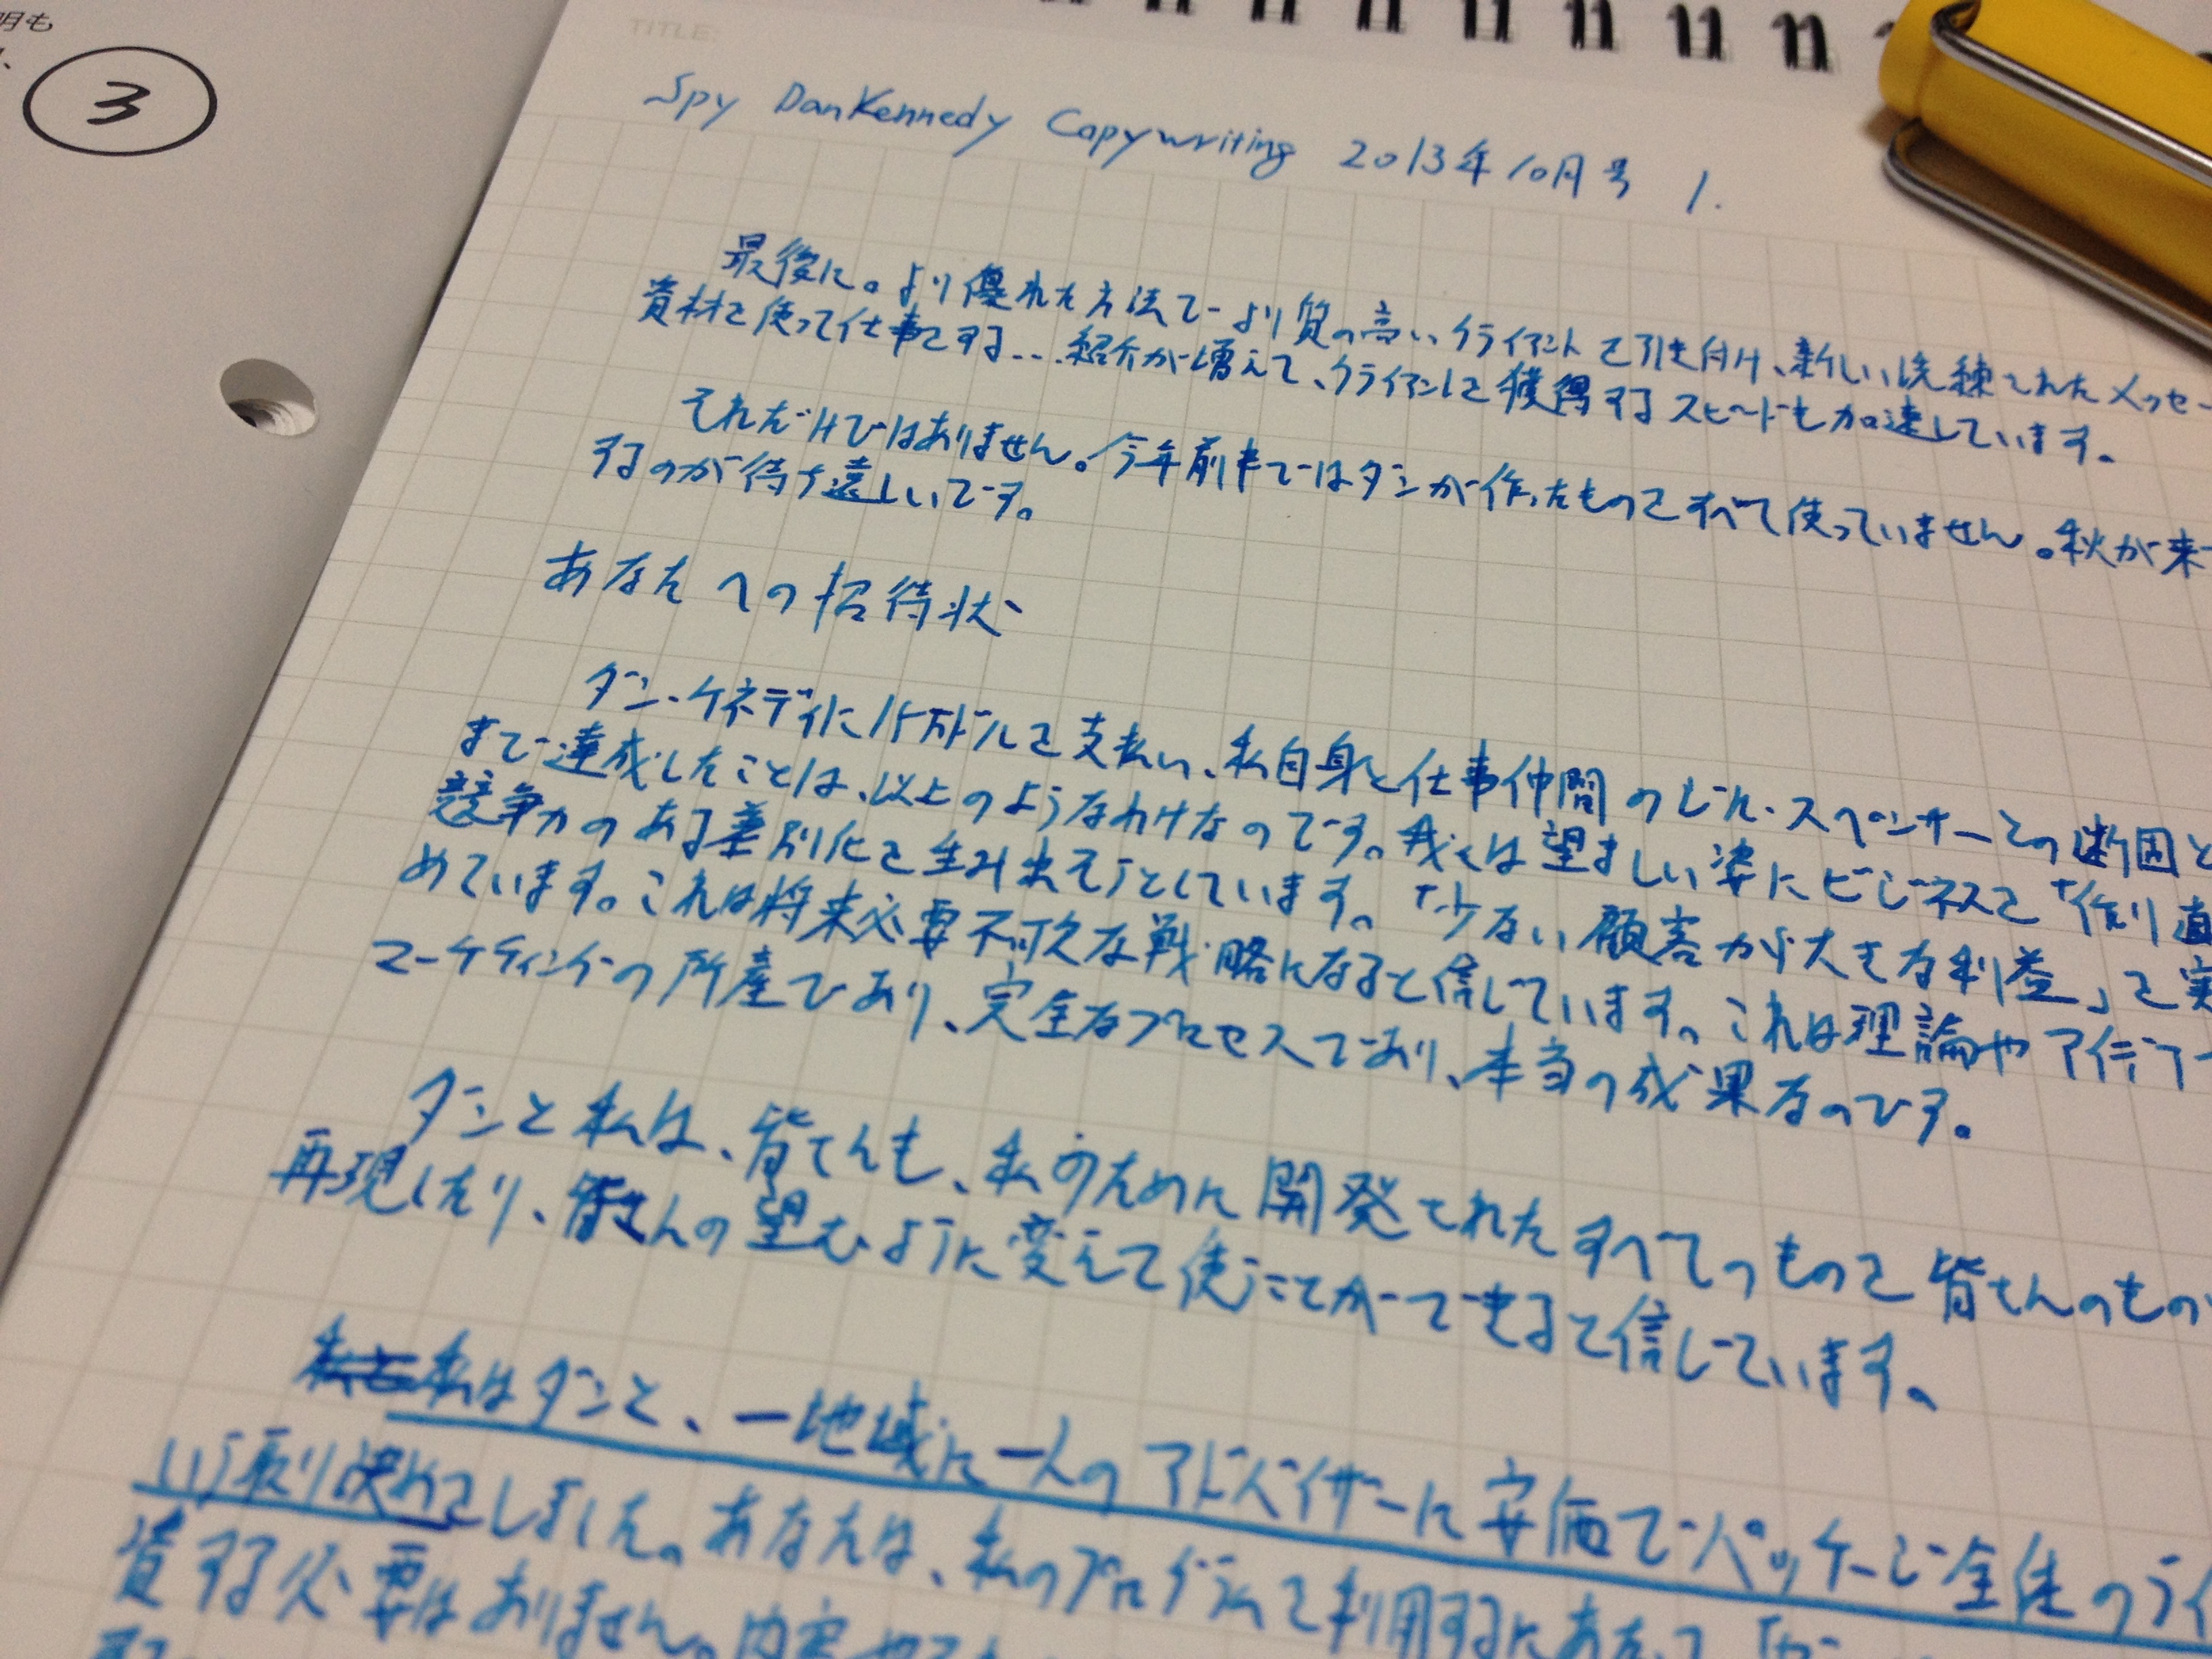 明も
3
TITLE:
Spy DanKennedy Copywriting 2013年10月号 1.
最後に。より優れた方法で より質の高いクライアントを引き付け、新しい洗練されたメッセー
資材を使って仕事をする...紹介が増えて、クライアントを獲得するスピードも加速しています。
それだけではありません。今年前半ではダンが作ったものをすべて使っていません。秋が来
するのが待ち遠しいです。
あなたへの招待状
ダン・ケネディに ドルを支払い、私自身と仕事仲間の スペンサーとの 断固と
まで達成したことは、以上のようなわけなのです。我々は望ましい姿にビジネスを「作り直
競争力のある差別化を生み出そうとしています。「少ない顧客から大きな利益」を実
めています。これは将来必要不可欠な戦略になると信じています。これは理論やアイデア
マーケティングの所産であり、完全なプロセスであり、本当の成果なのです。
ダンと私は、皆さんも、私のために開発されたすべてのものを皆さんのもの
再現したり、皆さんの望むように変えて使うことができると信じています。
私と私はダンと、一地域に一人のアドバイザーに安価でパッケージ全体のライ
いう取り決めをしました。あなたは、私のプログラムを利用するにあたって
資する必要はありません。内容